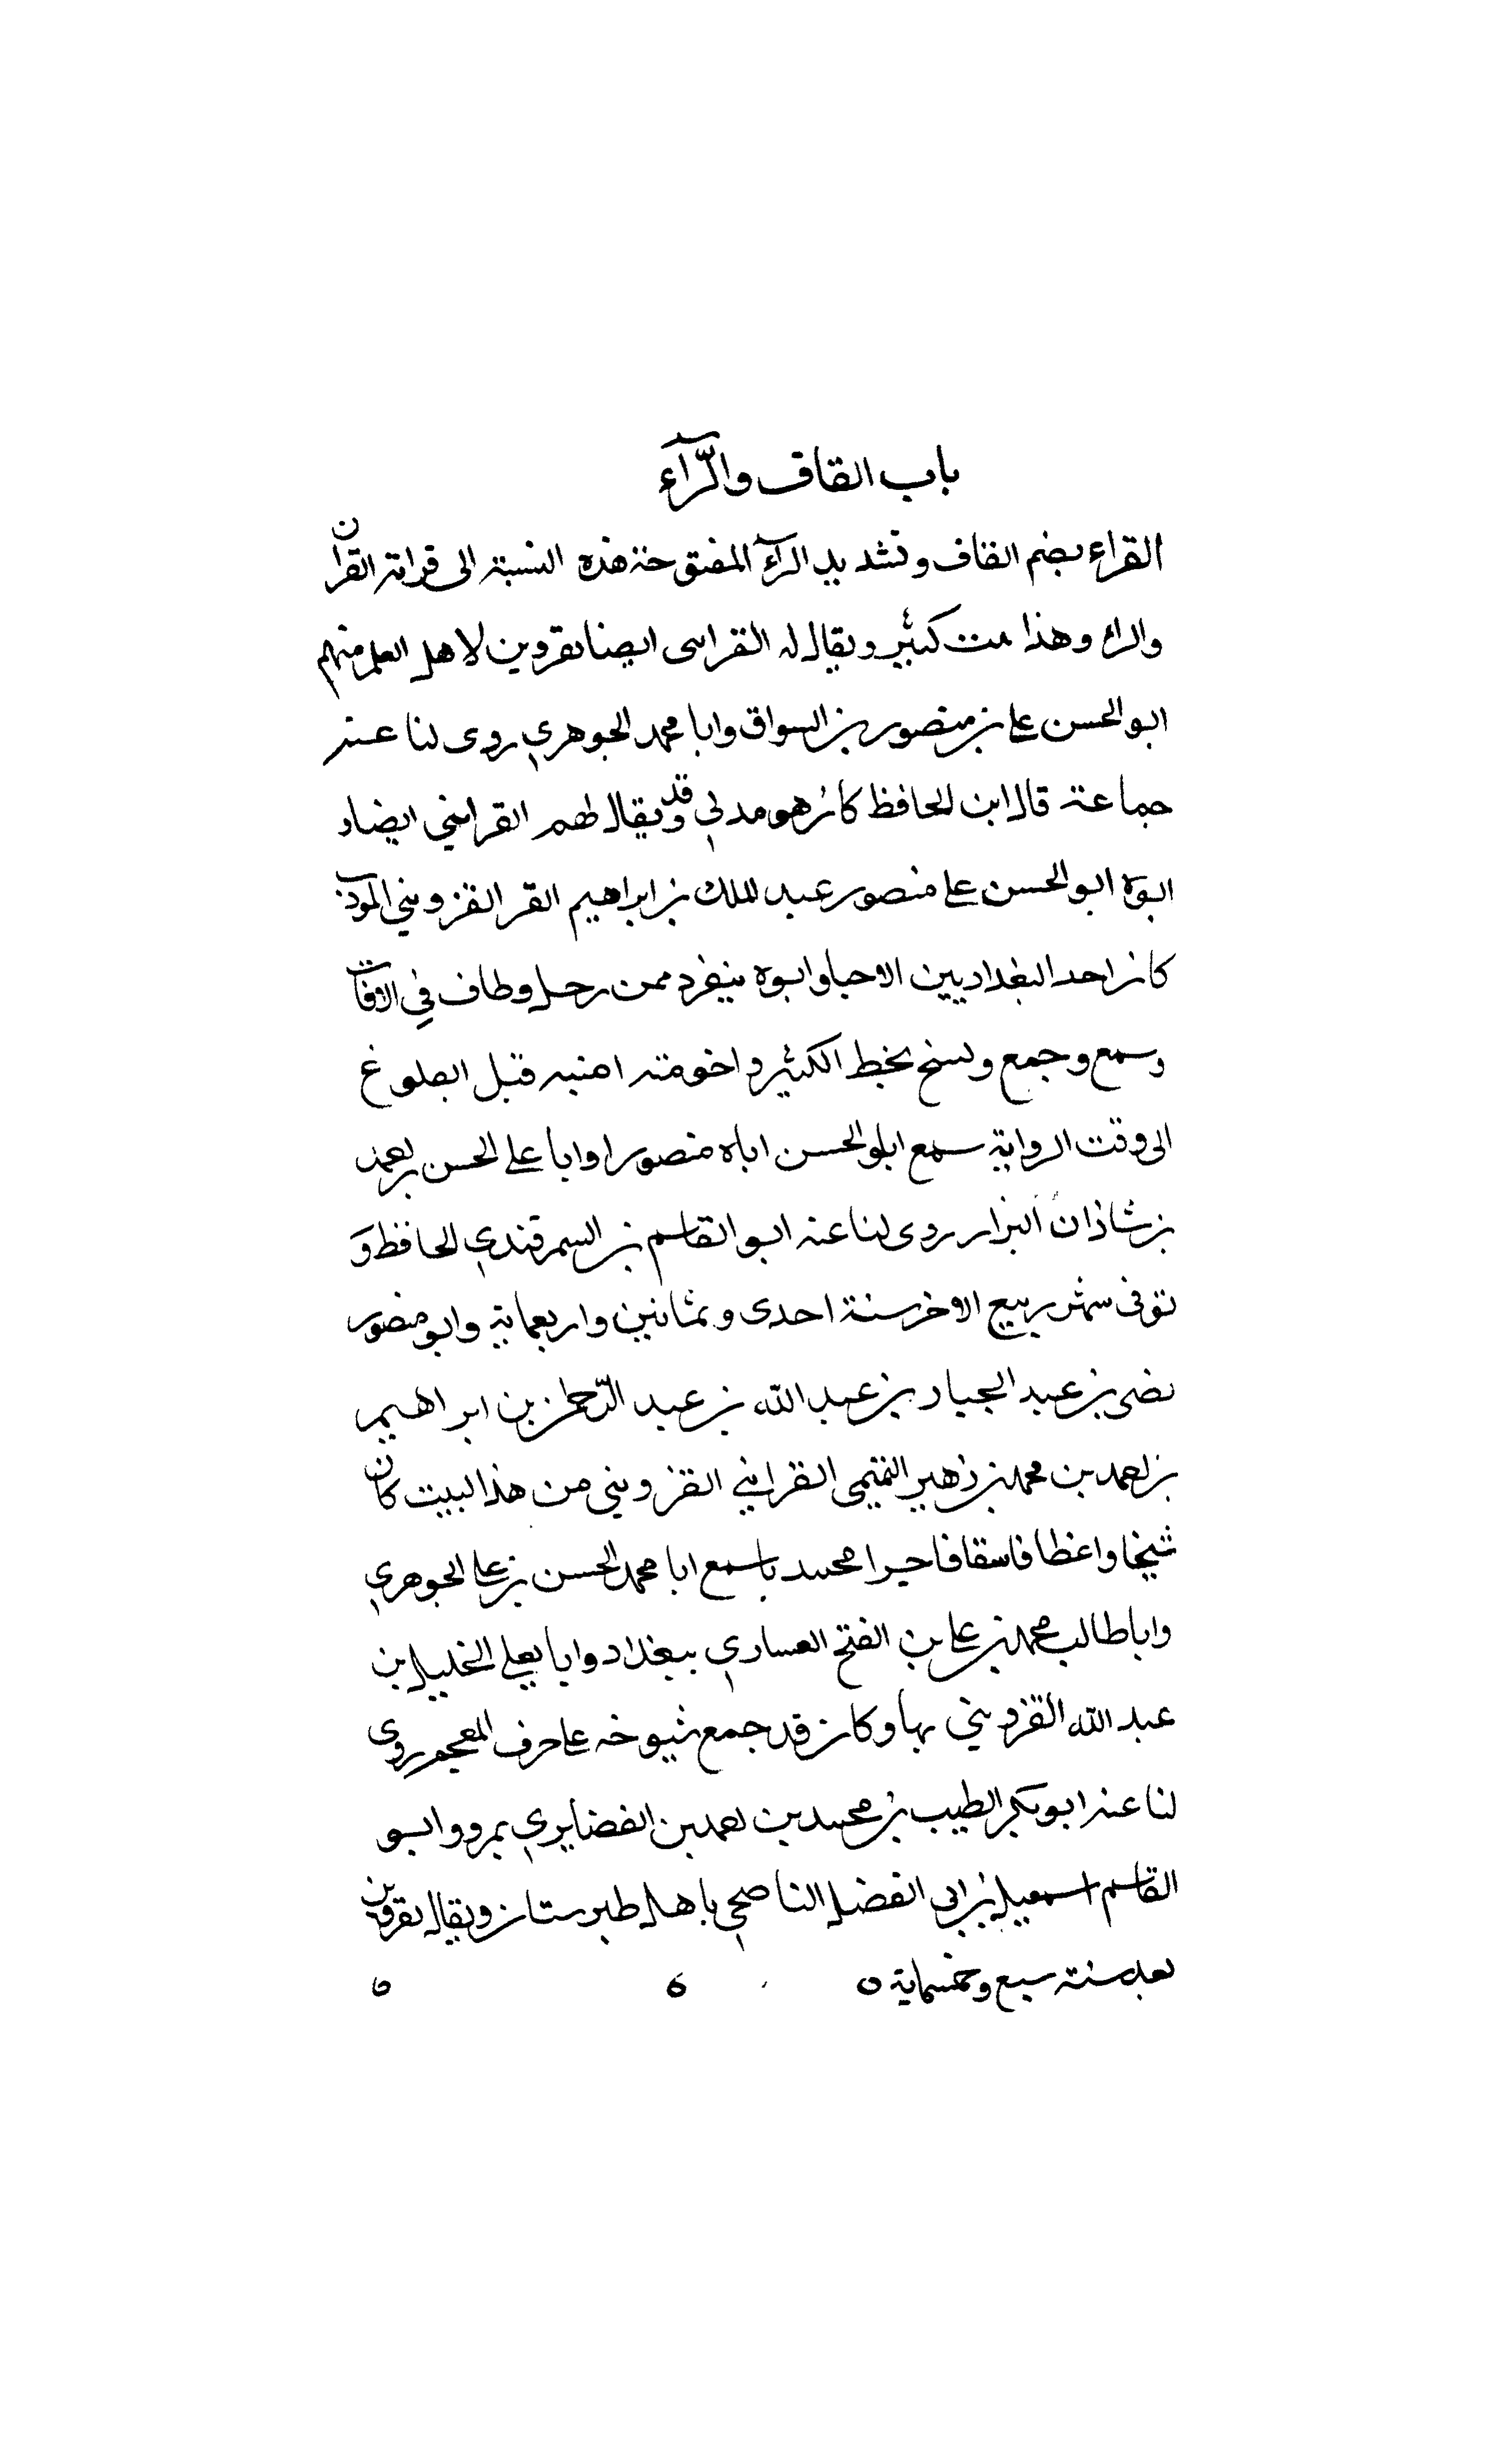 باب القاف والرّآء
القراء بضم القاف وتشديد الرآء المفتوحة هذه النسبة الى قراة القران
والرا وهذا بيت كبير ويقال له القرايى ايضا بقزوين لاهل العلم منهم
ابو الحسن على بن منصور بن السواق وابا محمد الجوهري روى لنا عنه
جماعة قال ابن الحافظ كان هو مدلى وقد ويقال لهم القرايني ايضا و
ابوه ابو الحسن على منصور عبد الملك بن ابراهيم القر القزويني المودب
كان احد البغداديين الاحيا وابوه ينفرد ممن رحل وطاف في الافاق
وسمع وجمع ونسخ بخط الكثير و قبل البلوغ
الى وقت الرواية سمع ابلو الحسن اباه منصورا وابا على الحسن بن احمد
بن شاذان البزار روى لنا عنه ابو القاسم بن السمرقندي الحافظ و
توفى شهر ربيع الاخر سنة احدى وثمانين واربعماية وابو منصور
بن عبد الجبار بن عبد الله بن عبد الرّحمن بن ابراهيم
بن احمد بن محمد بن زهير التميمى القرايني القزويني من هذا البيت كان
شيخا واعظا فاسقا فاجرا سمع ابا محمد الحسن بن على الجوهري
وابا طالب محمد بن على بن الفتح العساري ببغداد وابا يعلى الخليل بن
عبد الله القزويني بها وكان قد جمع شيوخه على حرف المعجم روى
لنا عنه ابو بكر الطيب بن محمد بن احمد بن الغضايري بمرو وابو
القاسم اسمعيل بن ابى الفضل الناصحي باهل طبرستان ويقال بقزوين
بعد سنة سبع وخمسماية ه ه ه